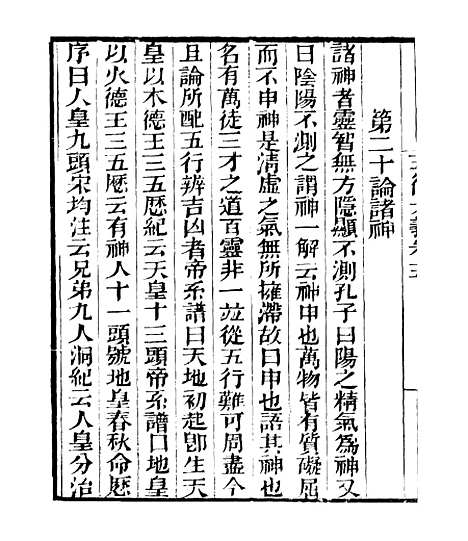 第二十論諸神
諸神者靈智無方隱顯不測孔子曰陽之精氣爲神又
曰陰陽不測之謂神一解云神申也萬物皆有質礙屈
而不申神是清虛之氣無所擁滯故曰申也語其神也
名有萬徒三才之道百靈非一竝從五行難可周盡今
且論所配五行辨吉凶者帝系譜曰天地初起卽生天
皇以木德王三五歷紀云天皇十三頭帝系譜曰地皇
以火德王三五歷云有神人十一頭號地皇春秋命歷
序曰人皇九頭宋均注云兄弟九人洞紀云人皇分治